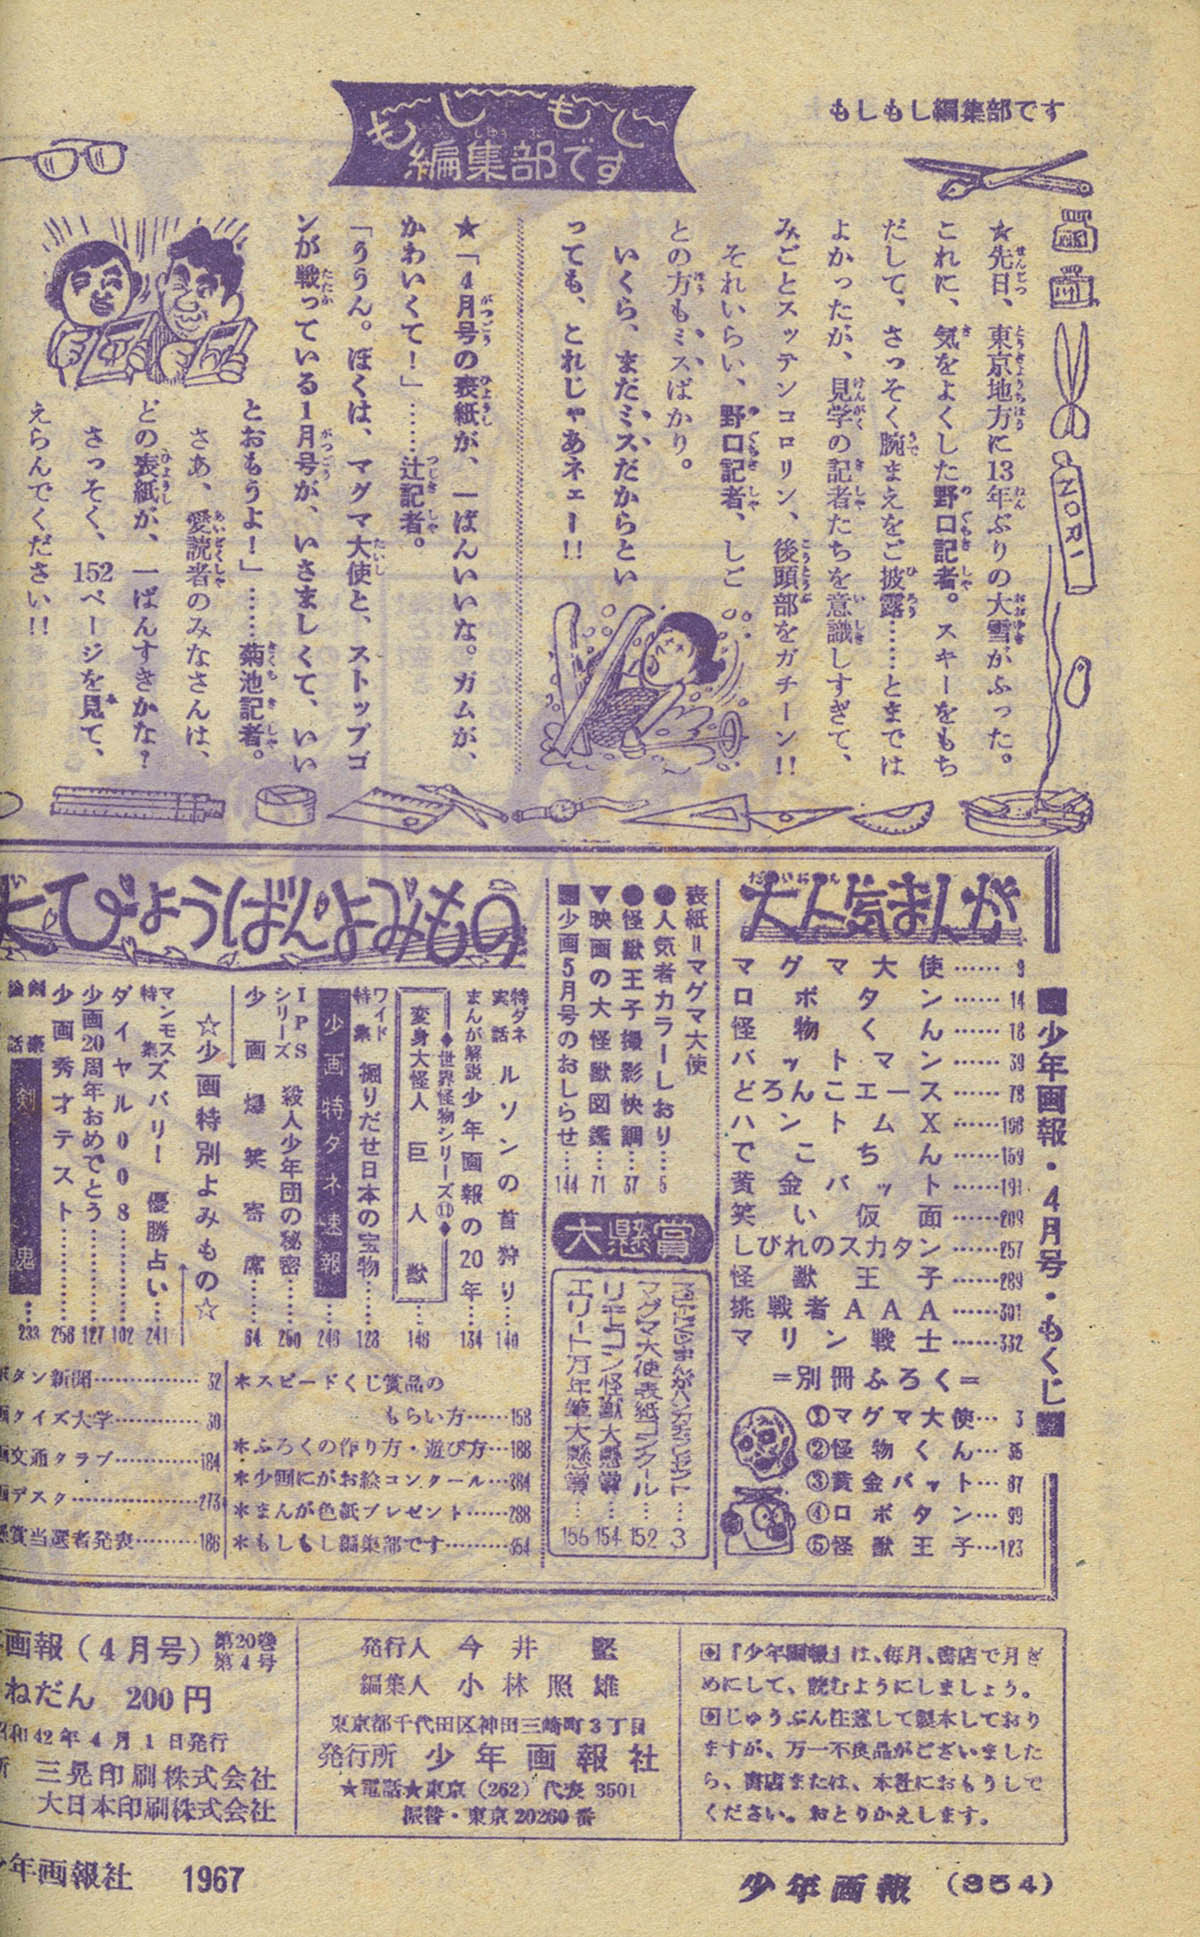 もしもし編集部です
もしもし
編集部です
★先日、東京地方に13年ぶりの大雪がふった。
これに、気をよくした野口記者。スキーをもち
だして、さっそく腕まえをご披露……とまでは
よかったが、見学の記者たちを意識しすぎて、
みごとスッテンコロリン、後頭部をガチーン!!
それいらい、野口記者、しご
との方も、ミスばかり。
いくら、まだミスだからとい
っても、とれじゃあネェー!!
NORI
★「4月号の表紙が、一ばんいいな。ガムが、
かわいくて!」……辻記者。
「ううん。ぼくは、マグマ大使と、ストップゴ
ンが戦っている1月号が、いさましくて、いい
とおもうよ!」……菊池記者。
さあ、愛読者のみなさんは、
どの表紙が、一ばんすきかな?
さっそく、152ページを見て、
えらんでください!!
■少年画報・4月号・もくじ■
大人気まんが
マグマ大使……9
ロボタン……14
怪物くん……18
バットマン……39
どろんこエース……78
ハントムX……106
でこちん……159
黄金バット……191
笑い仮面……209
しびれのスカタン……257
怪獣王子……289
挑戦者AAA……301
マリン戦士……332
=別冊ふろく=
①マグマ大使…3
②怪物くん…35
③黄金バット…87
④ロボタン…99
⑤怪獣王子…123
表紙=マグマ大使
●人気者カラーしおり……5
●怪獣王子撮影快調……37
▼映画の大怪獣図鑑……71
■少画5月号のおしらせ…144
大懸賞
マグマ大使表紙コンクール…152
リモコン怪獣大懸賞…154
エリート万年筆大懸賞…156
大ひょうばんよみもの
特ダネ実話 ルソンの首狩り…140
まんが解説 少年画報の20年…134
◆世界怪物シリーズ⑪◆
変身大怪人 巨人獣……146
ワイド特集 掘りだせ日本の宝物……128
少画特ダネ速報……246
IPSシリーズ 殺人少年団の秘密……250
少画爆笑寄席……64
☆少画特別よみもの☆
マンモス特集 ズバリ!優勝占い…241
ダイヤル008……102
少画20周年おめでとう……127
少画秀才テスト……256
剣豪
…233
*スピードくじ賞品の
もらい方……158
*ふろくの作り方・遊び方…188
*少画にがお絵コンクール…284
*まんが色紙プレゼント……288
*もしもし編集部です………354
タン新聞……………32
クイズ大学…………30
文通クラブ…………184
デスク………………273
賞当選者発表………186
画報(4月号) 第20巻 第4号
ねだん 200円
和42年4月1日発行
三晃印刷株式会社
大日本印刷株式会社
発行人 今井堅
編集人 小林照雄
東京都千代田区神田三崎町3丁目
発行所 少年画報社
★電話★東京(262)代表 3501
振替・東京20260番
◆『少年画報』は、毎月、書店で月ぎ
めにして、読むようにしましょう。
◆じゅうぶん注意して製本しており
ますが、万一不良品がございました
ら、書店または、本社におもうしで
ください。おとりかえします。
少年画報社 1967
少年画報 (354)